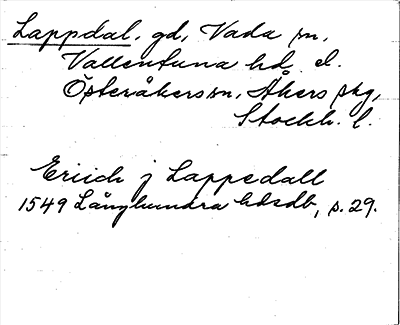 Lappdal, gd, Vada sn,
Vallentuna hd el.
Österåkers sn, Åkers skg,
Stockh. l.
Eriich j Lappedall
1549 Långhundra hdsdb, s. 29.